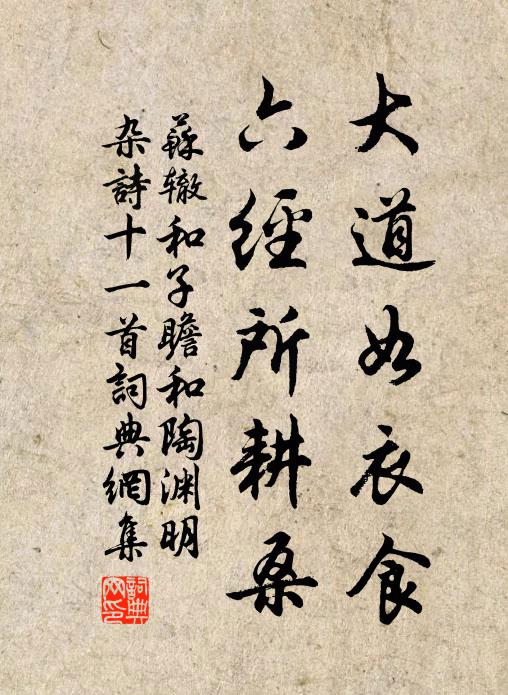 大道如衣食
六經所耕桑
蘇辙和子瞻和陶渊明
杂詩十一首詞典網集
詞典
文印